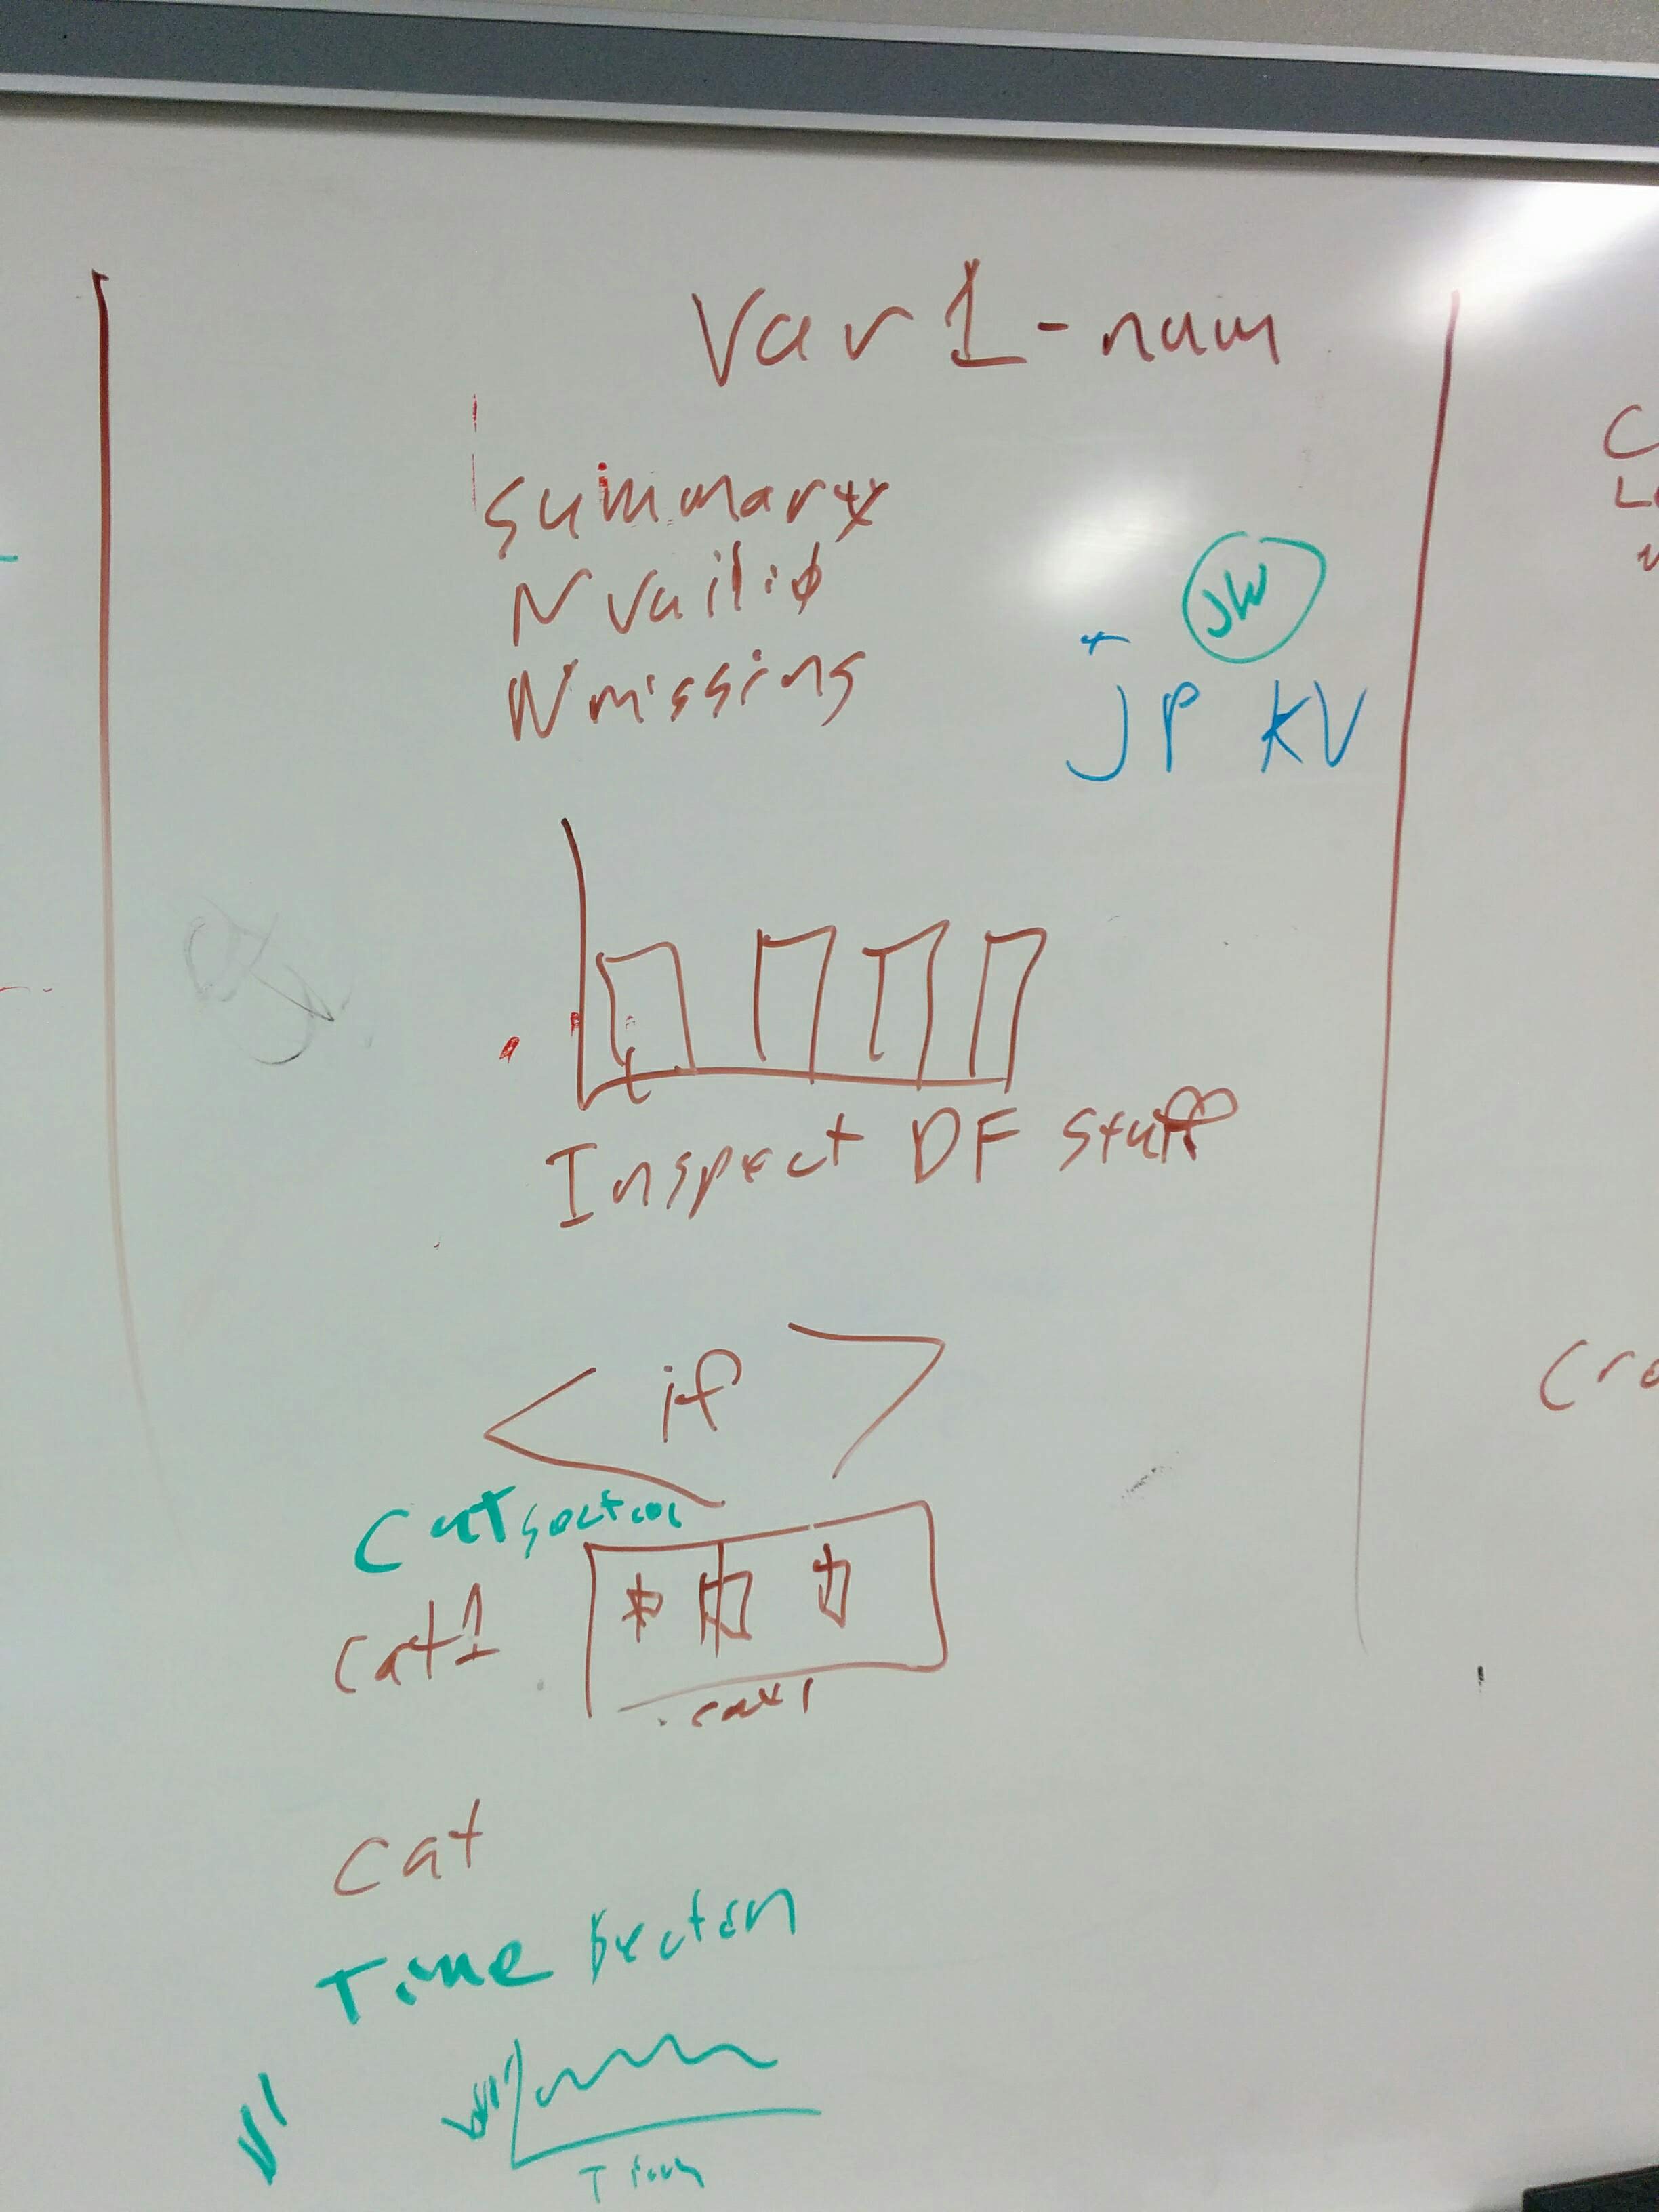 Var 1 - num
summary
N vailid
N missing
JW
+
JP KV
Inspect DF stuff
if
Cat section
cat1
cat1
cat
Time section
V1
Time
C
cro